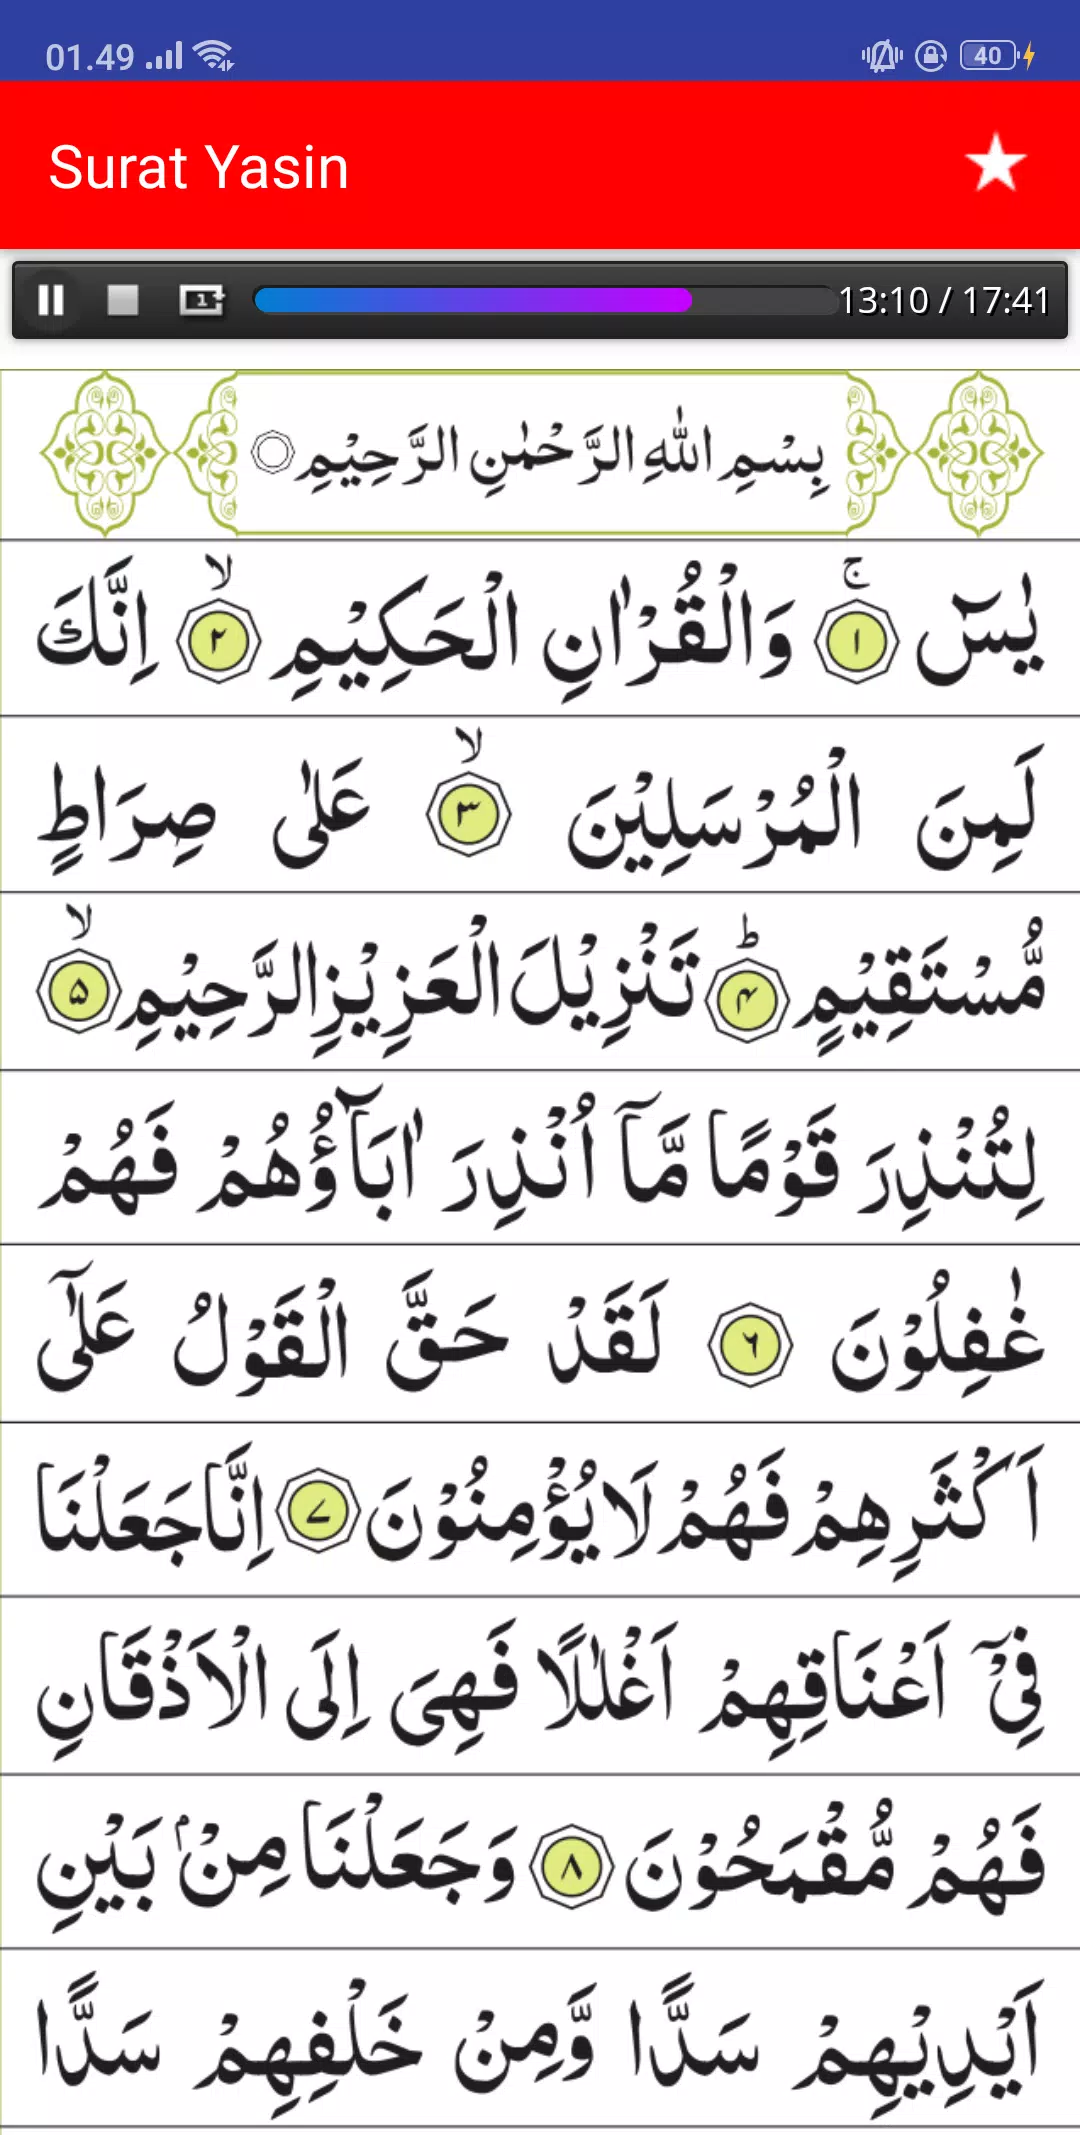 01.49
40
Surat Yasin
1
13:10 / 17:41
بِسْمِ اللّٰهِ الرَّحْمٰنِ الرَّحِيْمِ
يٰسٓ ۚ ۝١ وَالْقُرْاٰنِ الْحَكِيْمِ ۙ ۝٢ اِنَّكَ
لَمِنَ الْمُرْسَلِيْنَ ۙ ۝٣ عَلٰى صِرَاطٍ
مُّسْتَقِيْمٍ ؕ ۝۴ تَنْزِيْلَ الْعَزِيْزِ الرَّحِيْمِ ۙ ۝۵
لِتُنْذِرَ قَوْمًا مَّآ اُنْذِرَ اٰبَآؤُهُمْ فَهُمْ
غٰفِلُوْنَ ۝۶ لَقَدْ حَقَّ الْقَوْلُ عَلٰٓى
اَكْثَرِهِمْ فَهُمْ لَا يُؤْمِنُوْنَ ۝۷ اِنَّا جَعَلْنَا
فِيْٓ اَعْنَاقِهِمْ اَغْلٰلًا فَهِيَ اِلَى الْاَذْقَانِ
فَهُمْ مُّقْمَحُوْنَ ۝۸ وَجَعَلْنَا مِنْۢ بَيْنِ
اَيْدِيْهِمْ سَدًّا وَّمِنْ خَلْفِهِمْ سَدًّا